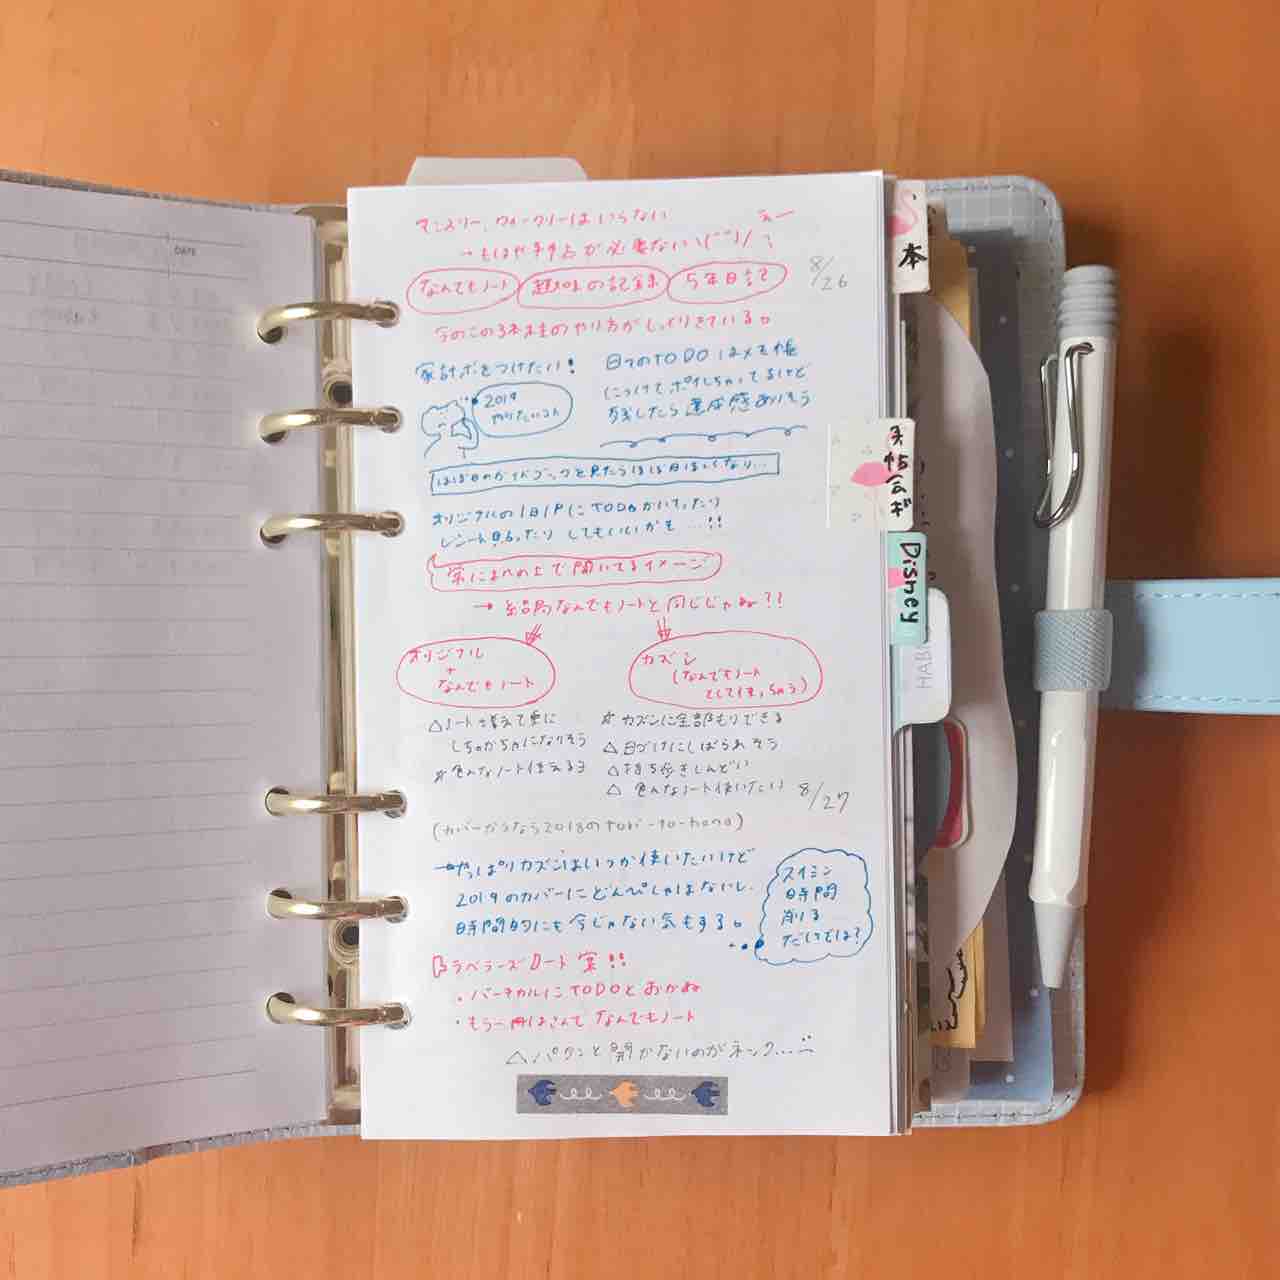 DATE
マンスリー、ウィークリーはいらない
→もはや手帳が必要ない\(^^)/
えー
8/26
なんでもノート 趣味の記録 5年日記
今のこの3冊のやり方がしっくりきている。
家計ボをつけたい!
2019
やりたいコト
日々のTODOはメモ帳
につけてポイしちゃってるけど
残したら達成感ありそう
ほぼ日のガイドブックを見たらほぼ日ほしくなり…
オリジナルの1日1PにTODOかいちゃったり
レシート貼ったりしてもいいかも…!!
常に机の上で開いてるイメージ
→結局なんでもノートと同じじゃね??
オリジナル
+
なんでもノート
△ノート増えて更に
しちゃかちゃになりそう
☆色んなノート使えるヨ
カズン
(なんでもノート
として使っちゃう)
☆カズンに全部もりできる
△日づけにしばられそう
△持ち歩きしんどい
△色んなノート使いたい
8/27
(カバーかうなら2018のTobi-to-hono)
→やっぱりカズンはいつか使いたいけど
2019のカバーにどんぴしゃはないし、
時間的にも今じゃない気もする。
スイミン
時間
削る
だけでは?
トラベラーズノート案!!
・バーチカルにTODOとおかね
・もう一冊はさんでなんでもノート
△パタンと開かないのがネック…
本
手帖会ギ
Disney